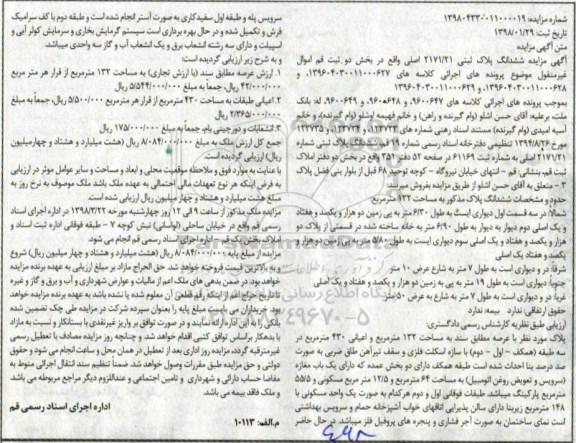 شماره مزایده: ۱۳۹۸۰۴۲۳۰۰۱۱۰۰۰۰۱۹
تاریخ ثبت: ۱۳۹۸/۰۱/۲۹
متن آگهی مزایده
آگهی مزایده ششدانگ پلاک ثبتی ۲۱۷۱/۲۱ اصلی واقع در بخش دو ثبت قم اموال
غیرمنقول موضوع پرونده های اجرائی کلاسه های ۱۳۹۶۰۴۰۳۰۰۱۱۰۰۰۶۲۷،
۱۳۹۶۰۴۰۳۰۰۱۱۰۰۰۶۲۸ و ۱۳۹۶۰۴۰۳۰۰۱۱۰۰۰۶۲۹
بموجب پرونده های اجرائی کلاسه های ۹۶۰۰۶۴۷ و ۹۶۰۰۶۴۸ و ۹۶۰۰۶۴۹ له: بانک
ملت برعلیه: آقای حسن اشلو (وام گیرنده و راهن) و خانم فهیمه اشلو (وام گیرنده) و خانم
آسیه امیدی (وام گیرنده) مستند اسناد رهنی شماره های ۱۲۳۷۲۳ و ۱۲۳۷۲۴ و ۱۲۳۷۲۵
مورخ ۱۳۹۴/۸/۲۶ تنظیمی دفترخانه اسناد رسمی شماره ۱۹ قم ششدانگ پلاک ثبتی شماره
۲۱۷۱/۲۱ اصلی به شماره ثبت ۶۱۱۶۹ در صفحه ۵۲ دفتر ۳۵۱ واقع در بخش دو دفتر املاک
ثبت قم بنشانی: قم - انتهای خیابان نیروگاه - کوچه توحید ۶۸ قبل از بلوار بنی فضل پلاک
۳ - متعلق به آقای حسن اشلو از طریق مزایده بفروش میرسد.
حدود و مشخصات ششدانگ پلاک مذکور به مساحت ۱۳۲ مترمربع
شمالا: در سه قسمت اول دیواری است به طول ۶/۳۰ متر به پی زمین دو هزار و یکصد و هفتاد
و یک اصلی دوم دیوار به دیوار به طول ۶/۹۰ متر به خانه ساخته شده در قسمتی از پلاک دو
هزار و یکصد و هفتاد و یک اصلی سوم دیواری است به طول ۵/۸۰ متر به پی زمین دو هزار و
یکصد و هفتاد و یک اصلی
شرقا: در و دیواری است به طول ۷ متر به شارع عرض ۱۰ متر
جنوبا: دیواری است به طول ۱۹ متر به پی به زمین دو هزار و یکصد و هفتاد و یک اصلی
غربا: در و دیواری است به طول ۷ متر به شارع به عرض ۵۰ متر
حقوق ارتفاقی: ندارد بیمه ندارد
ارزیابی طبق نظریه کارشناس رسمی دادگستری:
پلاک مورد نظر با عرصه مطابق سند به مساحت ۱۳۲ مترمربع و اعیانی ۴۳۰ مترمربع در
سه طبقه (همکف - اول - دوم) با سازه اسکلت فلزی و سقف تیرآهن طاق ضربی به صورت
صد درصد بنا احداث شده است طبقه همکف دارای دو بخش عمده که دارای یک باب مغازه
(سرویس و تعویض روغن اتومبیل) به مساحت ۶۴ مترمربع و ۱۲/۵ متر مربع مسکونی و ۵۵/۵
مترمربع پارکینگ میباشد طبقات فوقانی اول و دوم هرکدام به صورت یک واحد مسکونی با
۱۴۸ مترمربع زیربنا دارای سالن پذیرایی اتاقهای خواب آشپزخانه حمام و سرویس بهداشتی
است نمای ساختمان به صورت آجر فشاری و پنجره های پروفیل فلز میباشد. در حال حاضر
سرویس پله و طبقه اول سفیدکاری به صورت آستر انجام شده است و طبقه دوم با کف سرامیک
فرش و تکمیل شده و در حال بهره برداری است سیستم گرمایش بخاری و سرمایش کولر آبی و
اسپیلت و دارای سه رشته انشعاب برق و یک انشعاب آب و گاز سه واحدی میباشد.
و به شرح زیر ارزیابی گردیده است:
۱. ارزش عرصه مطابق سند (با ارزش تجاری) به مساحت ۱۳۲ مترمربع از قرار هر متر مربع
۴۲/۰۰۰/۰۰۰ ریال، جمعاً به مبلغ ۵/۵۴۴/۰۰۰/۰۰۰ ریال
۲. اعیانی طبقات به مساحت ۴۳۰ مترمربع از قرار هر مترمربع ۵/۵۰۰/۰۰۰ ریال، جمعاً به مبلغ
۲/۳۶۵/۰۰۰/۰۰۰ ریال
۳. انشعابات و دورچینی بام، جمعاً به مبلغ ۱۷۵/۰۰۰/۰۰۰ ریال
جمع کل ارزش ملک به مبلغ ۸/۰۸۴/۰۰۰/۰۰۰ ریال (هشت میلیارد و هشتاد و چهارمیلیون
ریال) ارزیابی گردیده است
با عنایت به موارد فوق و ملاحظه موقعیت محلی و ابعاد و مساحت و سایر عوامل موثر در ارزیابی
به فرض اینکه هر نوع تعهدات مالی احتمالی به عهده ملک باشد ملک موصوف به نرخ روز به
مبلغ هشت میلیارد و هشتاد و چهار میلیون ریال ارزیابی شده است.
مزایده ملک مذکور از ساعت ۹ الی ۱۲ روز چهارشنبه مورخه ۱۳۹۸/۳/۲۲ در اداره اجرای اسناد
رسمی قم واقع در خیابان ساحلی (لواسانی) نبش کوچه ۷ - طبقه فوقانی اداره ثبت اسناد و
املاک بخش یک قم - اداره اجرای اسناد رسمی قم انجام می شود.
مزایده از مبلغ پایه ۸/۰۸۴/۰۰۰/۰۰۰ ریال (هشت میلیارد و هشتاد و چهار میلیون ریال) شروع
و به بالاترین قیمت فروخته خواهد شد. حق الحراج مازاد بر مبلغ ارزیابی به عهده برنده مزایده
خواهد بود. در ضمن بدهی های ملک اعم از مالیات و عوارض شهرداری و آب و برق و گاز و غیره
تا تاریخ حراج اعم از اینکه رقم قطعی آن معلوم شده یا نشده باشد به عهده برنده مزایده خواهد
بود خریداران می بایست مبلغ پایه را بعنوان سپرده شرکت در مزایده طی چک تضمین شده
بانکی را به این اداره ارائه نمایند و در صورت توافق بر واریز غیرنقدی با بستانکار و نسبت به مازاد
با بدهکار براساس توافق کتبی اقدام خواهد شد. و چنانچه روز مزایده مصادف با تعطیل رسمی
غیرمترقبه گردد، مزایده روز اداری بعد از تعطیل در همان محل و ساعت انجام می شود و حقوق
دولتی و حق مزایده طبق مقررات وصول خواهد شد. ضمناً تنظیم سند انتقال اجرائی منوط به
مفاصا حساب دارائی و شهرداری و تامین اجتماعی و عندالزوم دیگر مراجع مربوطه می باشد.
و ملک فاقد بیمه می باشد.
اداره اجرای اسناد رسمی قم
م.الف: ۱۰۱۱۳